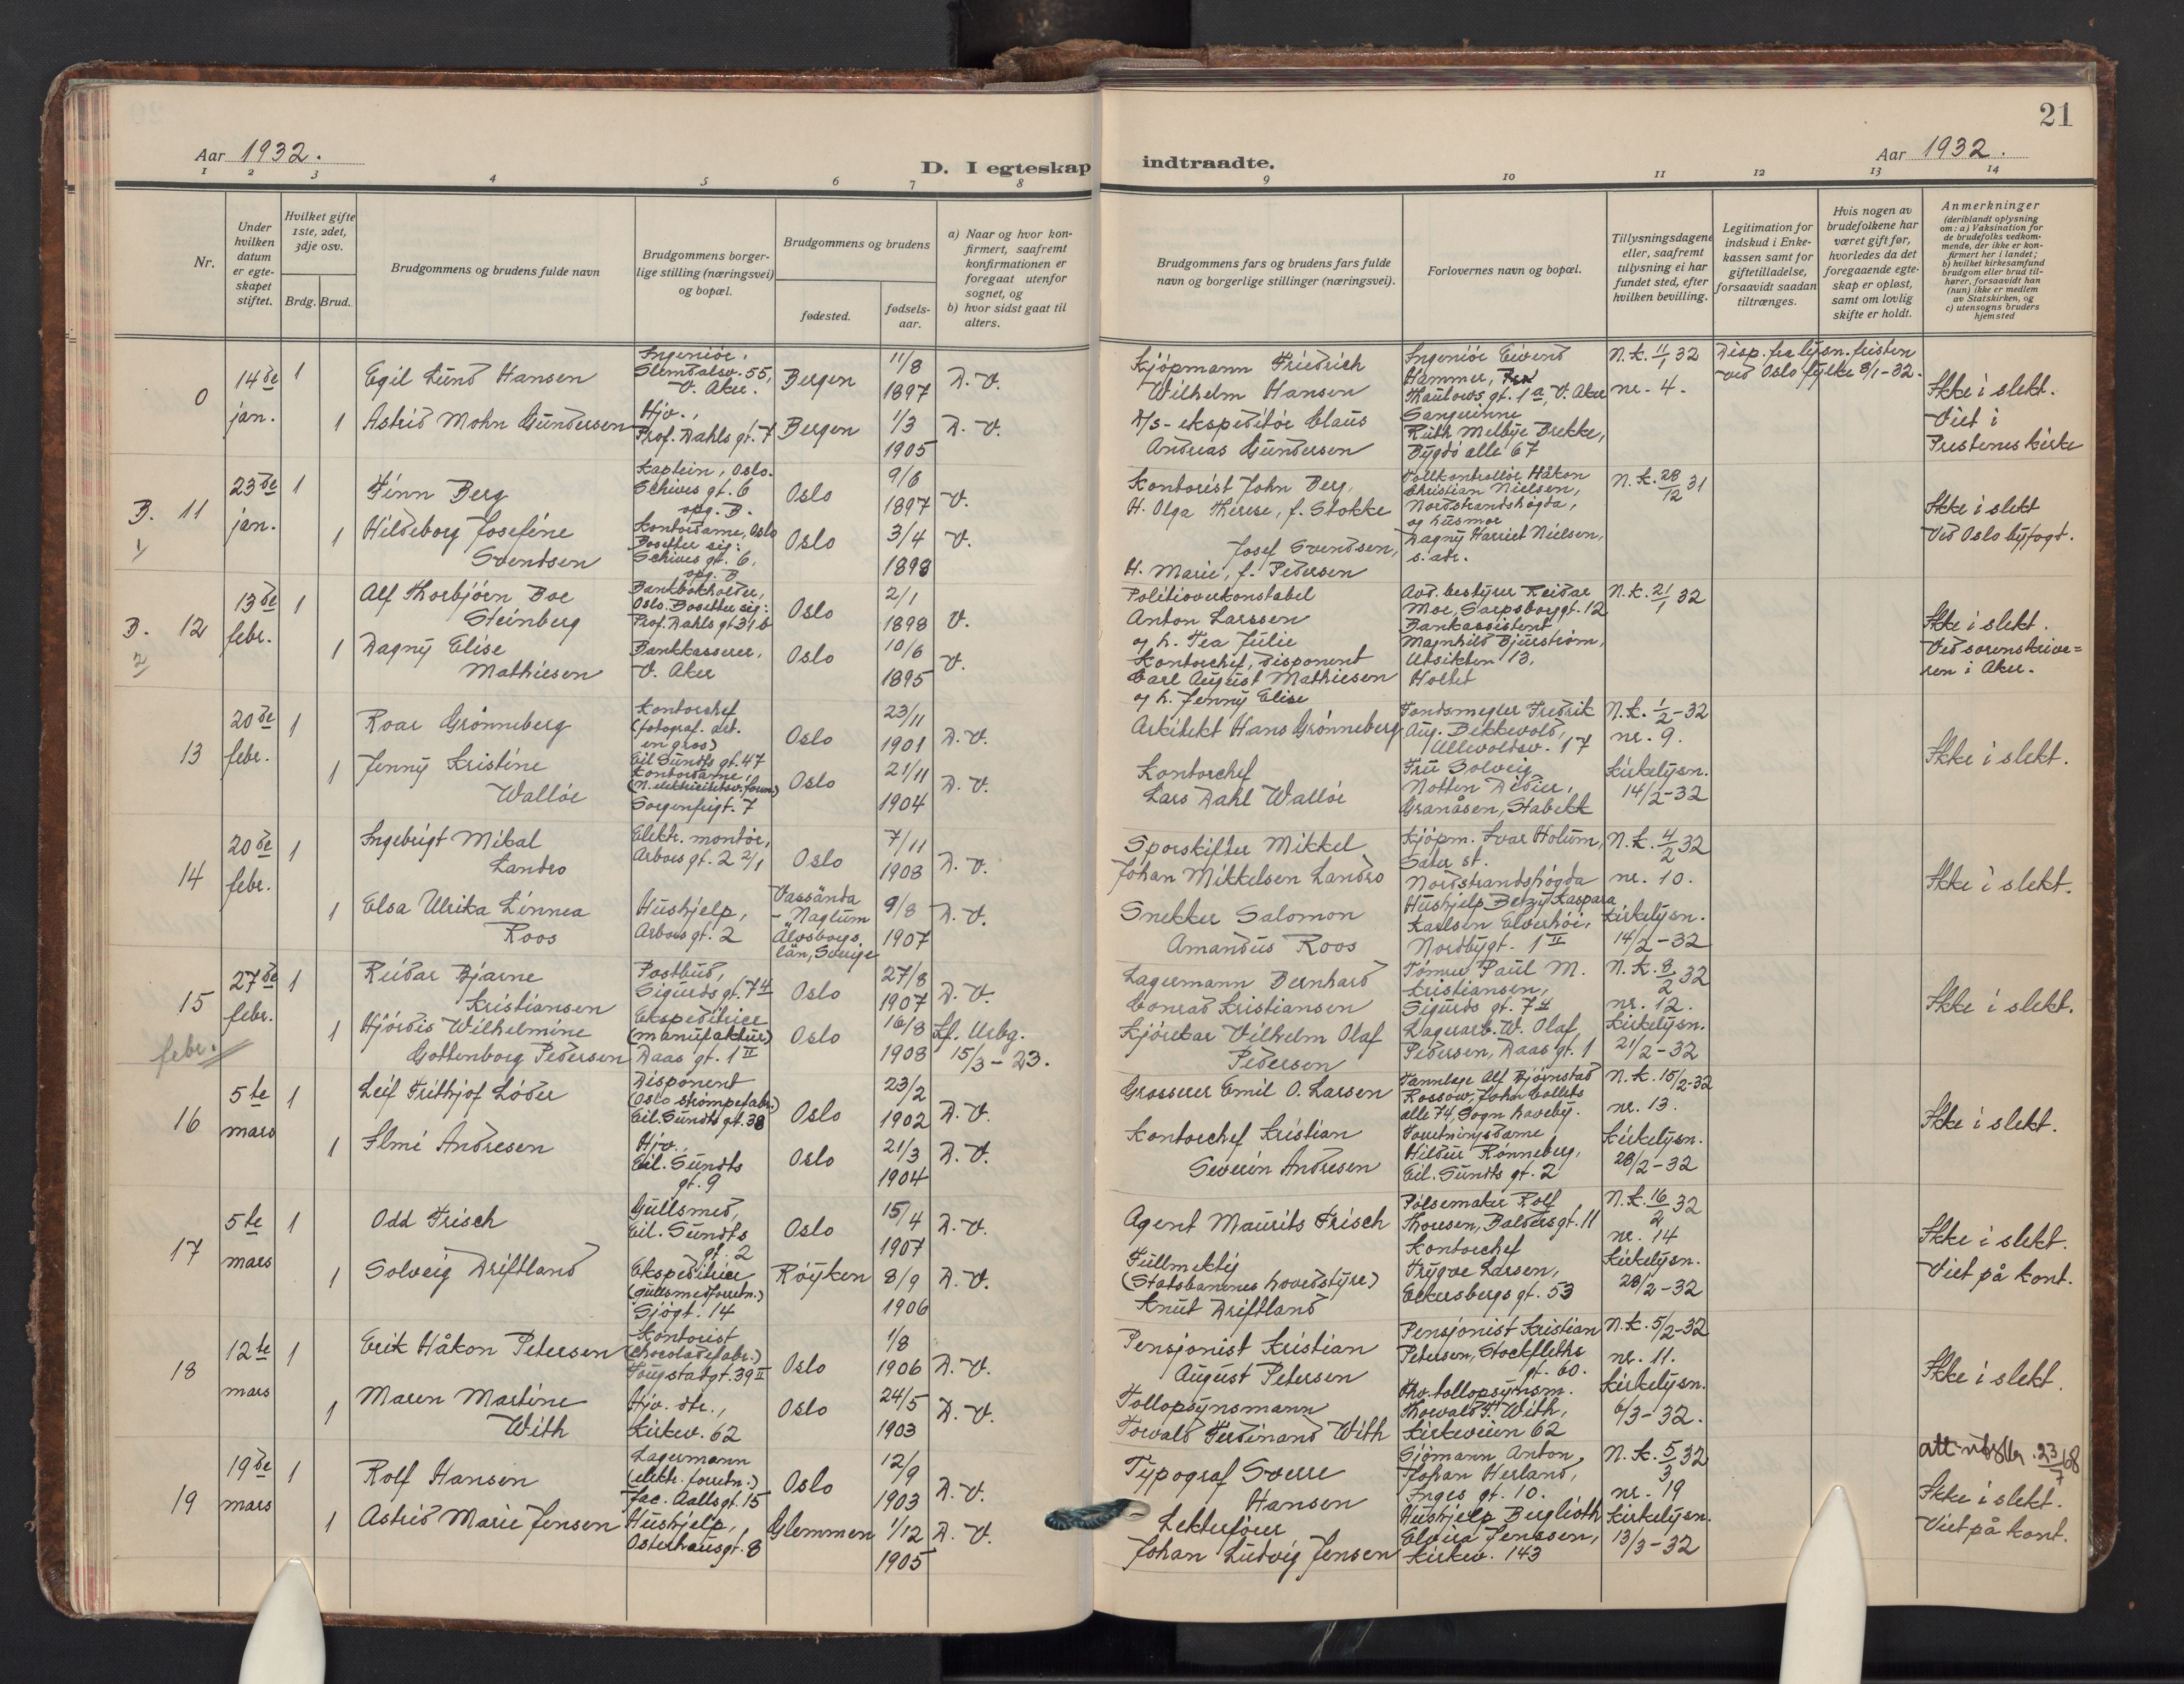 21
Aar 1932.
D. I egteskap indtraadte.
Aar 1932.
1 2 3 4 5 6 7 8 9 10 11 12 13 14
Nr.
Under hvilken datum er egteskapet stiftet.
Hvilket gifte 1ste, 2det, 3dje osv.
Brdg. Brud.
Brudgommens og brudens fulde navn
Brudgommens borgerlige stilling (næringsvei) og bopæl.
Brudgommens og brudens
fødested.
fødselsaar.
a) Naar og hvor konfirmert, saafremt konfirmationen er foregaat utenfor sognet, og
b) hvor sidst gaat til alters.
Brudgommens fars og brudens fars fulde navn og borgerlige stillinger (næringsvei).
Forlovernes navn og bopæl.
Tillysningsdagene eller, saafremt tillysning ei har fundet sted, efter hvilken bevilling.
Legitimation for indskud i Enkekassen samt for giftetilladelse, forsaavidt saadan tiltrænges.
Hvis nogen av brudefolkene har været gift før, hvorledes da det foregaaende egteskap er opløst, samt om lovlig skifte er holdt.
Anmerkninger
(deriblandt oplysning om: a) Vaksination for de brudefolks vedkommende, der ikke er konfirmert her i landet; b) hvilket kirkesamfund brudgom eller brud tilhører, forsaavidt han (hun) ikke er medlem av Statskirken, og c) utensogns bruders hjemsted
0
14de jan.
1
Egil Lund Hansen
Ingeniör, Slemdalsv. 55, V. Aker.
Bergen
11/8 1897
D. V.
Kjöpmann Friedrich Wilhelm Hansen
Ingeniör Eivend Hammer, Thaulows gt. 1a, V. Aker
N.k. 11/1 32 nr. 4.
Disp. fra lysn. fristen ved Oslo fylke 8/1-32.
Ikke i slekt.
1
Astrid Mohn Gundersen
Hjv., Prof. Dahls gt. 7
Bergen
1/3 1905
D. V.
D/s-ekspeditör Claus Andreas Gundersen
Sangerinne Ruth Melbye Brekke, Bygdö alle 67
Viet i Prestenes kirke
B. 11
1/
23de jan.
1
Finn Berg
Kaptein, Oslo. Schives gt. 6 opg. B.
Oslo
9/6 1897
V.
Kontorist John Berg, H. Olga Therese, f. Stokke
Tollkontrollör Håkon Christian Nielsen, Nordstrandshögda, og husmor
N.k. 28/12 31
Ikke i slekt
1
Hildeborg Josefine Svendsen
Kontordame, Oslo Bosetter sig: Schives gt. 6, opg. B
Oslo
3/4 1898
V.
Josef Svendsen, H. Marie, f. Pedersen
Dagny Harriet Nielsen, s. adr.
Ved Oslo byfogd.
B. 12
2/
13de febr.
1
Alf Thorbjörn Boe Steinberg
Bankbokholder, Oslo. Bosetter sig: Prof. Dahls gt 31 b
Oslo
2/1 1898
V.
Politioverkonstabel Anton Larssen og h. Tea Julie
Avd. bestyrer Reidar Moe, Sarpsborggt. 12
N.k. 21/1 32
Ikke i slekt.
1
Dagny Elise Mathiesen
Bankkasserer, V. Aker
Oslo
10/6 1895
V.
Kontorchef, disponent Carl August Mathiesen og h. Jenny Elise
Bankassistent Magnhild Bjurström, Utsikten 13, Holtet
Ved sorenskriveren i Aker.
13
20de febr.
1
Roar Grönneberg
Kontorchef (fotograf. art. en gros) Eil Sundts gt. 47
Oslo
23/11 1901
D. V.
Arkitekt Hans Grönneberg
Fondsmegler Fredrik Aug. Bekkevold, Ullevoldsv. 17
N.k. 1/2-32 nr. 9.
Ikke i slekt.
1
Jenny Kristine Wallöe
Kontordame, (N. elektricitetsv. foren.) Sorgenfrigt. 7
Oslo
21/11 1904
D. V.
Kontorchef Lars Dahl Wallöe
Fru Solveig Notten Didier, Granåsen, Stabekk
Kirkelysn. 14/2-32
14
20de febr.
1
Ingebrigt Mikal Landro
Elektr. montör, Arbos gt. 2 2/1
Oslo
7/11 1908
D. V.
Sporskifter Mikkel Johan Mikkelsen Landro
Kjöpm. Ivar Holum, Sæter st. Nordstrandshögda
N.k. 4/2 32 nr. 10.
Ikke i slekt.
1
Elsa Ulrika Linnea Roos
Hushjelp, Arbos gt. 2
Vassända - Naglum Älvsborgs län, Sverige
9/8 1907
D. V.
Snekker Salomon Amandus Roos
Hushjelp Betzy Kaspara Karlsen Elverhöi, Nordbygt. 1 II
Kirkelysn. 14/2-32
15
27de febr.
1
Reidar Bjarne Kristiansen
Postbud, Sigurds gt. 7 4
Oslo
27/8 1907
D. V.
Lagermann Bernhard Conrad Kristiansen
Tömmer Paul M. Kristiansen, Sigurds gt. 7 4
N.k. 8/2 32 nr. 12.
Ikke i slekt.
febr.
1
Hjördis Wilhelmine Gottenborg Pedersen
Ekspeditrice (manufaktur) Daas gt. 1 II
Oslo
16/8 1908
kf. Urbg. 15/3-23.
Kjörekar Vilhelm Olaf Pedersen
Lagerarb. W. Olaf Pedersen, Daas gt. 1
Kirkelysn. 21/2-32
16
5te mars
1
Leif Frithjof Löder
Disponent (Oslo strömpefabr.) Eil. Sundts gt. 38
Oslo
23/2 1902
D. V.
Grosserer Emil O. Larsen
Tannlege Alf Björnstad Rossow, John Colletts alle 74, Sogn haveby.
N.k. 15/2-32 nr. 13.
Ikke i slekt.
1
Ilmi Andresen
Hjv., Eil. Sundts gt. 9
Oslo
21/3 1904
D. V.
Kontorchef Kristian Severin Andresen
Forretningsdame Hildur Rönneberg, Eil. Sundts gt. 2
Kirkelysn. 28/2-32
17
5te mars
1
Odd Frisch
Gullsmed, Eil. Sundts gt. 2
Oslo
15/4 1907
D. V.
Agent Maurits Frisch
Pölsemaker Rolf Thoresen, Baldersgt. 11
N.k. 16/2 32 nr. 14
Ikke i slekt.
1
Solveig Driftland
Ekspeditrice (gullsmedforretn.) Sjögt. 14
Röyken
8/9 1906
D. V.
Fullmektig (Statsbanenes hovedstyre) Knut Driftland
Kontorchef Trygve Larsen, Eckersbergs gt. 53
Kirkelysn. 28/2-32
Viet på kont.
18
12te mars
1
Erik Håkon Petersen
Kontorist (chocoladefabr.) Fougstadgt. 39 II
Oslo
1/8 1906
D. V.
Pensjonist Kristian August Petersen
Pensjonist Kristian Petersen, Stockfleths gt. 60.
N.k. 5/2-32 nr. 11.
Ikke i slekt.
1
Maren Martine With
Hjv. dtr., Kirkev. 62
Oslo
24/5 1903
D. V.
Tollopsynsmann Torvald Ferdinand With
Thv. tollopsynsm. Thorvald F. With, Kirkeveien 62
Kirkelysn. 6/3-32.
19
19de mars
1
Rolf Hansen
Lagermann (elektr. forretn.) Jac. Aalls gt. 15
Oslo
12/9 1903
D. V.
Typograf Sverre Hansen
Sjömann Anton Johan Herland, Inges gt. 10.
N.k. 5/3 32 nr. 19
att. 23/7 68
Ikke i slekt.
1
Astrid Marie Jensen
Hushjelp, Osterhausgt. 8
Glemmen
1/12 1905
D. V.
Lekterförer Johan Ludvig Jensen
Hushjelp Berglioth Elvira Jenssen, Kirkev. 143
Kirkelysn. 13/3-32
Viet på kont.